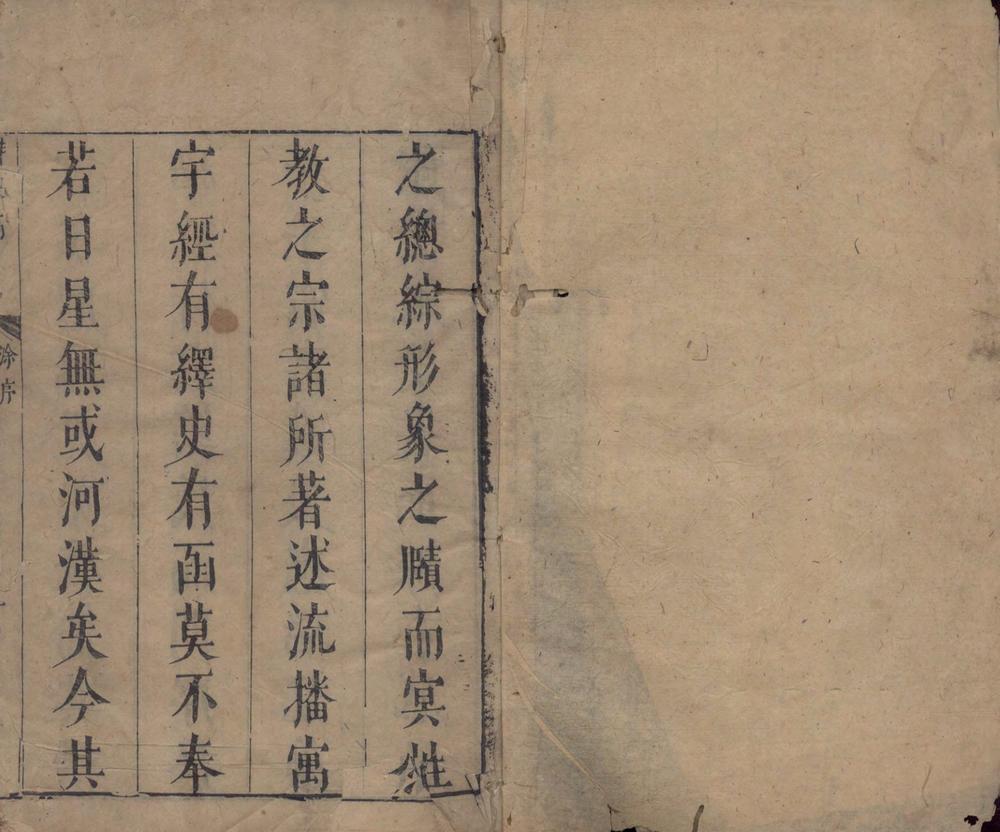 之總綜形象之賾而㝠
教之宗諸所著述流播寓
宇經有繹史有函莫不奉
若日星無或河漢矣今其
涂序